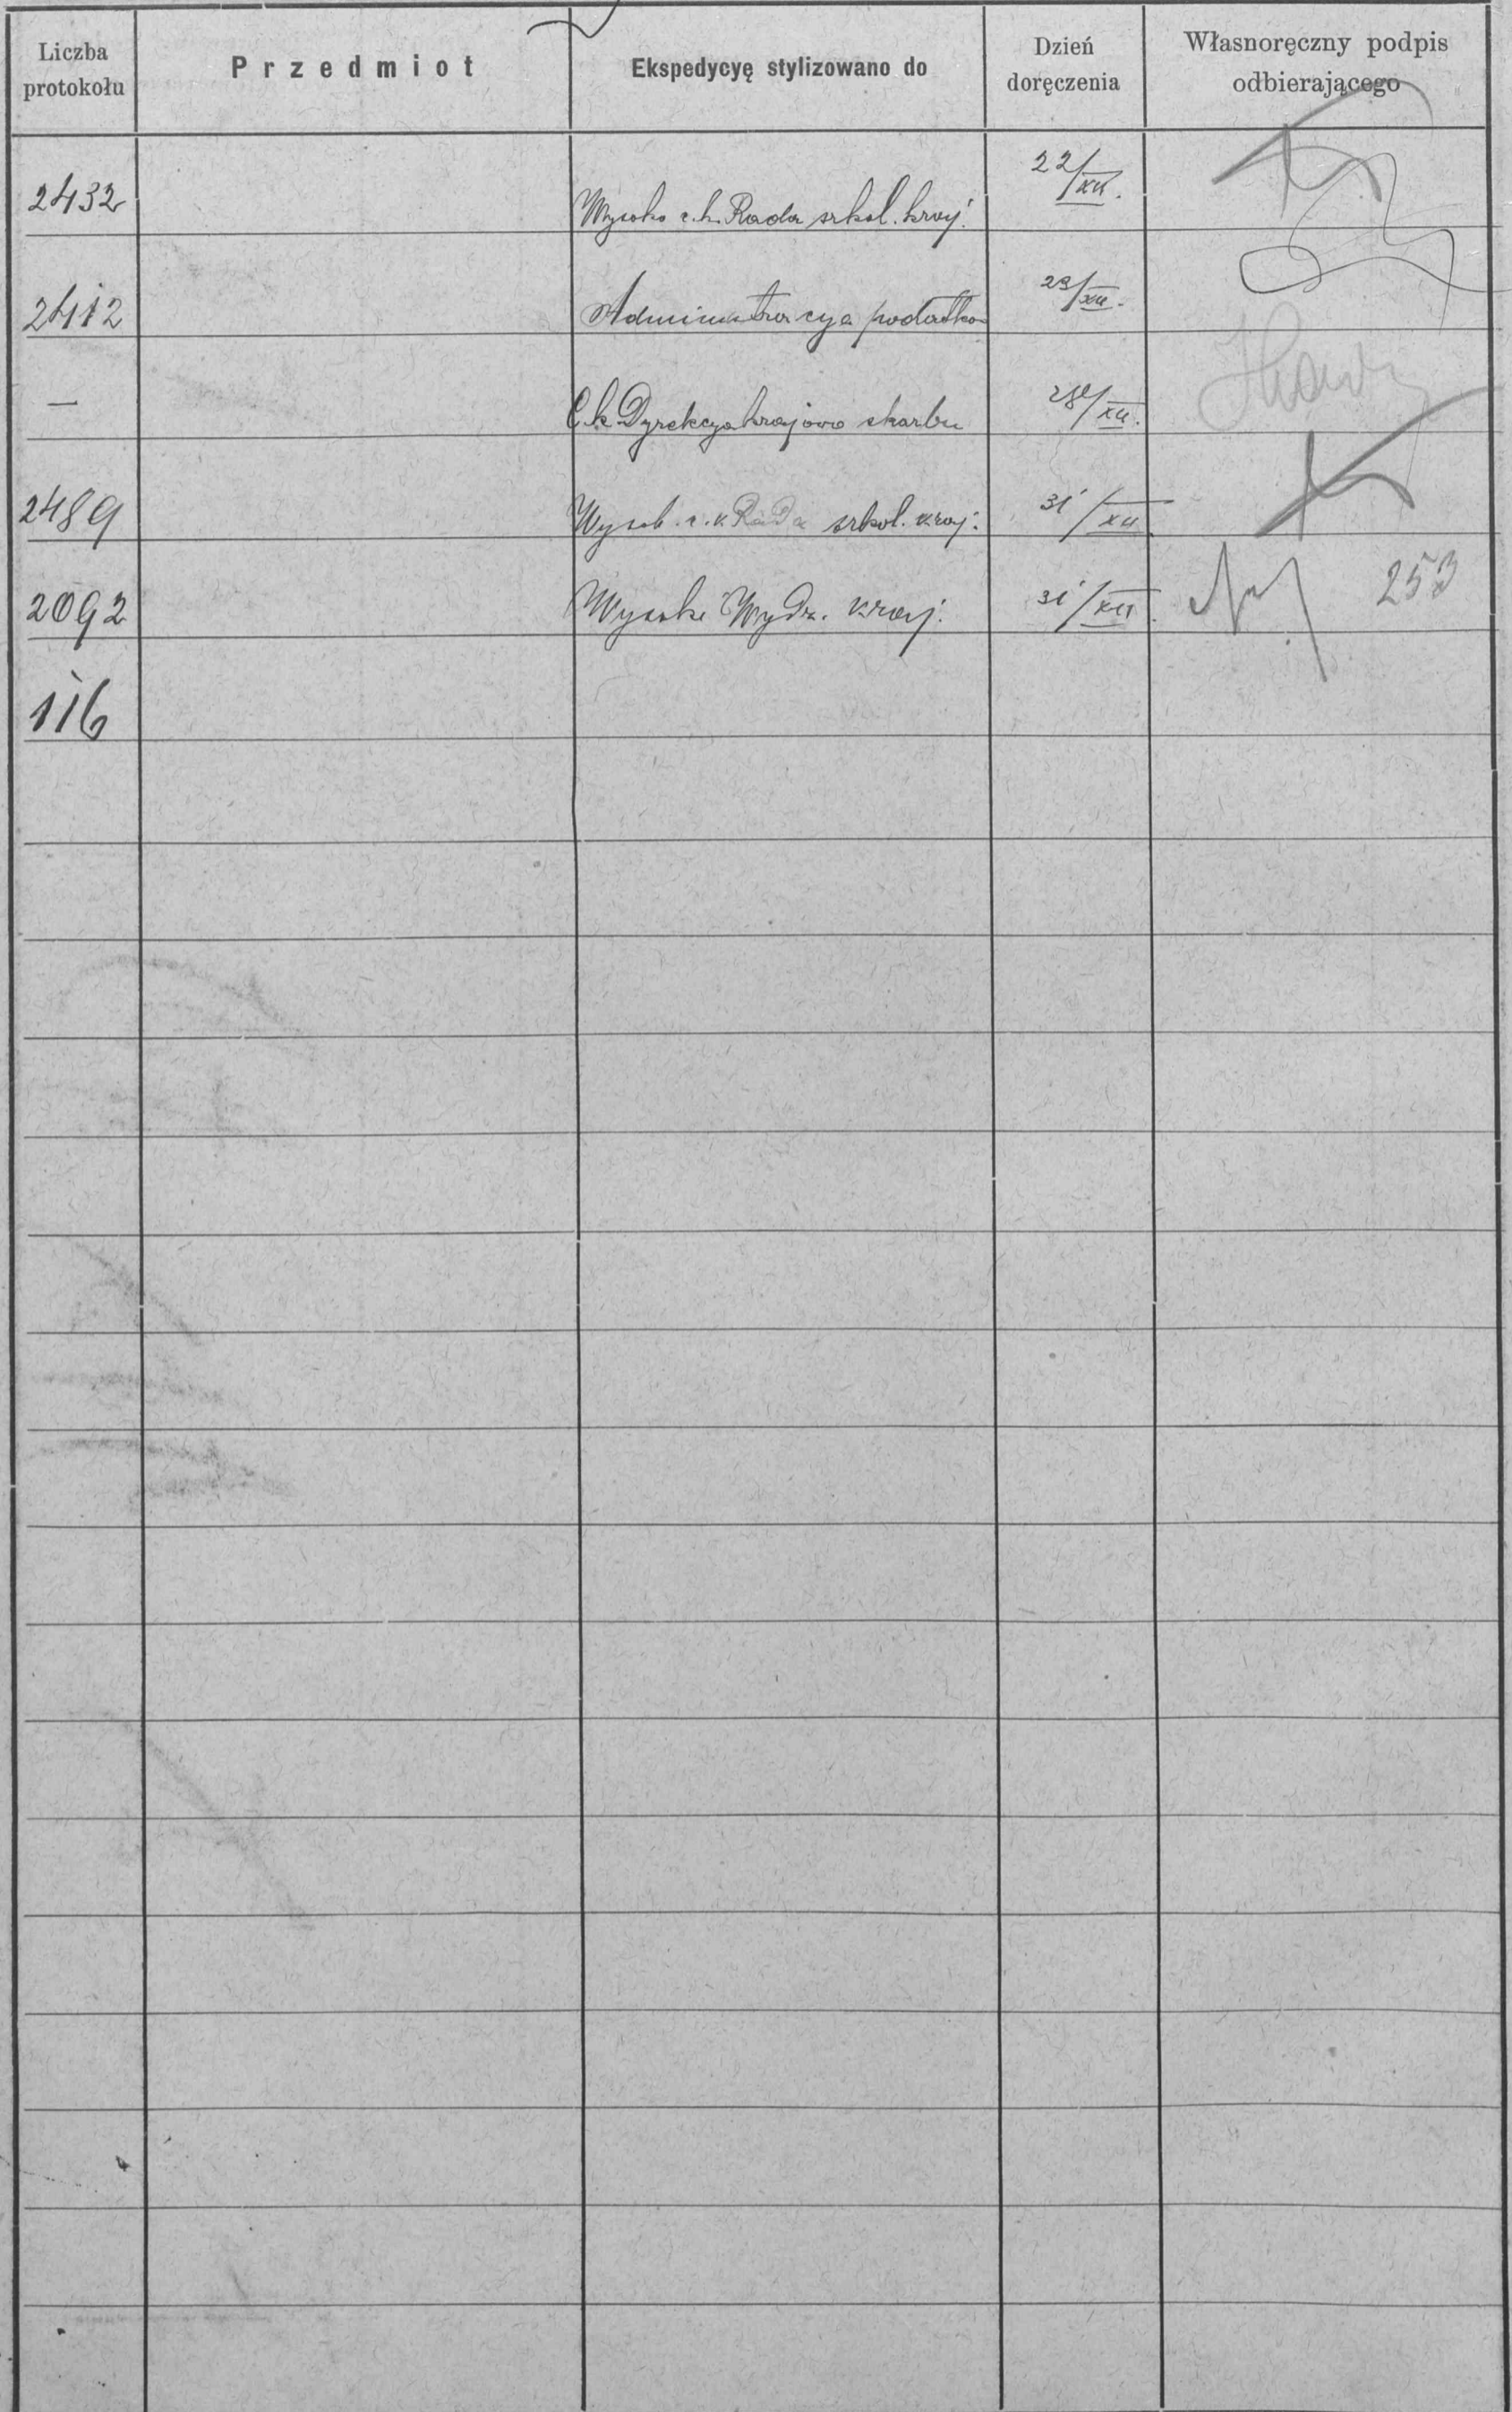 Liczba protokołu Przedmiot Ekspedycyę stylizowano do Dzień doręczenia Własnoręczny podpis odbierającego
2432 Wysoka c.k. Rada szkol. kraj. 22/XII.
2412 Administracya podatków 23/XII.
— C.k. Dyrekcya krajowa skarbu 28/XII.
2489 Wysok. c.k. Rada szkol. kraj. 31/XII.
2092 Wysoki Wydz. kraj. 31/XII. 253
116